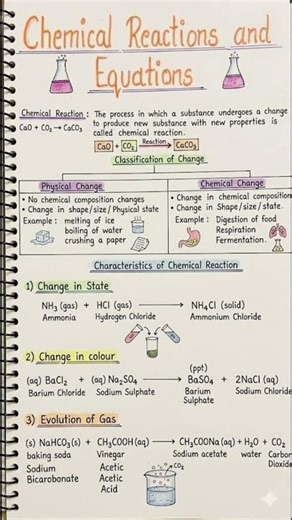 Chemical Reactions and
Equations
Chemical Reaction : The process in which a substance undergoes a change
CaO + CO₂ → CaCO₃ to produce new substance with new properties is
called chemical reaction.
CaO + CO₂ Reaction→ CaCO₃
Classification of Change
Physical Change
Chemical Change
• No chemical composition changes
• Change in shape/size/Physical state
Example : melting of ice
boiling of water
crushing a paper
• Change in chemical composition
• Change in Shape/size/state.
Example : Digestion of food
Respiration
Fermentation.
Characteristics of Chemical Reaction
1) Change in State
NH₃ (gas) + HCl (gas) → NH₄Cl (solid)
Ammonia Hydrogen Chloride Ammonium Chloride
2) Change in colour
(ppt)
(aq) BaCl₂ + (aq) Na₂SO₄ → BaSO₄ + 2NaCl (aq)
Barium Chloride Sodium Sulphate Barium Sodium Chloride
Sulphate
3) Evolution of Gas
(s) NaHCO₃(s) + CH₃COOH(aq) → CH₃COONa (aq) + H₂O + CO₂
baking soda Vinegar Sodium acetate water Carbon
Sodium Acetic Dioxide
Bicarbonate Acetic
Acid
CO₂